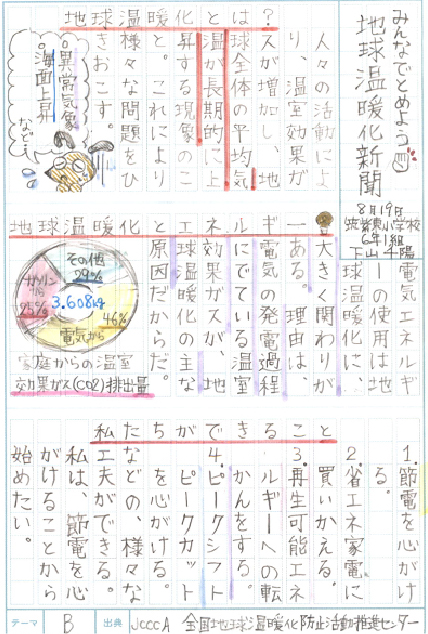 みんなでとめよう
地球温暖化新聞
8月19日
筑紫東小学校
6年1組
地球温暖化とは？
人々の活動によ
り、温室効果が
スが増加し、地
球全体の平均気
温が長期的に上
昇する現象のこ
と。これにより
様々な問題をひ
きおこす。
・異常気象
・海面上昇
など…
地球温暖化とエネルギー
電気エネルギ
ーの使用は地
球温暖化に、
大きく関わりが
ある。理由は、
電気の発電過程
にでている温室
効果ガスが、地
球温暖化の主な
原因だからだ。
その他
29%
ガソリン
から
25%
3.608kg
46%
電気から
家庭からの温室
効果ガス(CO2)排出量
私たちができること
1.節電を心がけ
る。
2.省エネ家電に
買いかえる。
3.再生可能エネ
ルギーへの転
かんをする。
4.ピークシフト
ピークカット
を心がける。
などの様々な
工夫ができる。
私は、節電を心
がけることから
始めたい。
テーマ
B
出典
JCCCA 全国地球温暖化防止活動推進センター